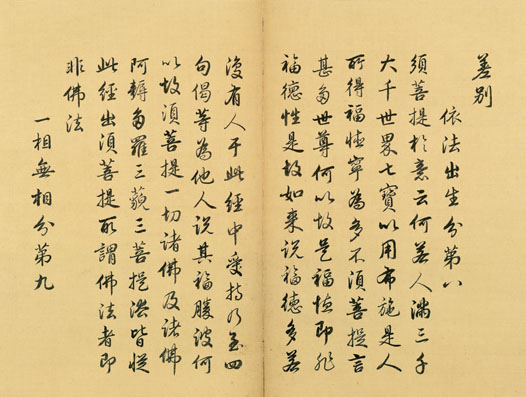 差别
依法出生分第八
須菩提於意云何若人滿三千
大千世界七寶以用布施是人
所得福德寧為多不須菩提言
甚多世尊何以故是福德即非
福德性是故如来說福德多若
復有人于此經中受持乃至四
句偈等為他人說其福勝彼何
以故須菩提一切諸佛及諸佛
阿耨多羅三藐三菩提法皆從
此經出須菩提所謂佛法者即
非佛法
一相無相分第九